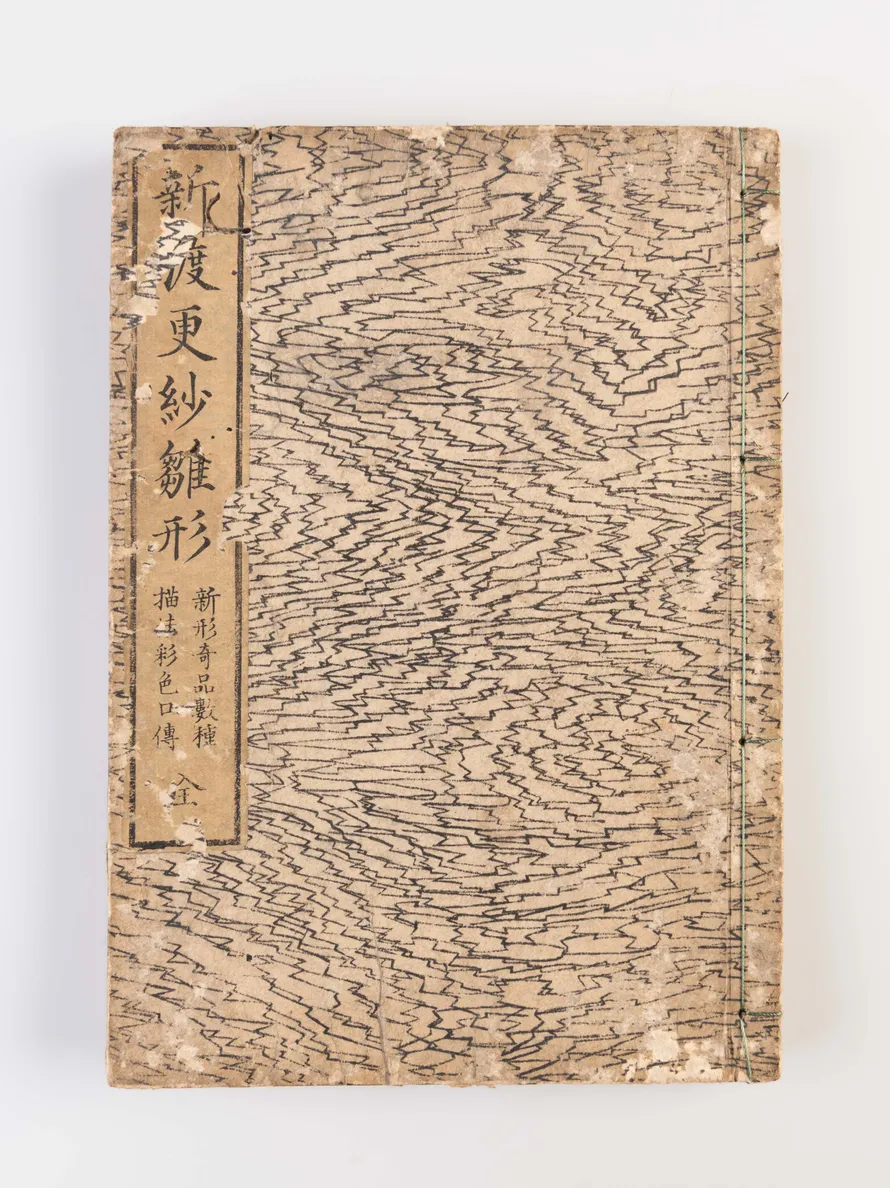 新渡更紗雛形
新形奇品數種
描法彩色口傳
全